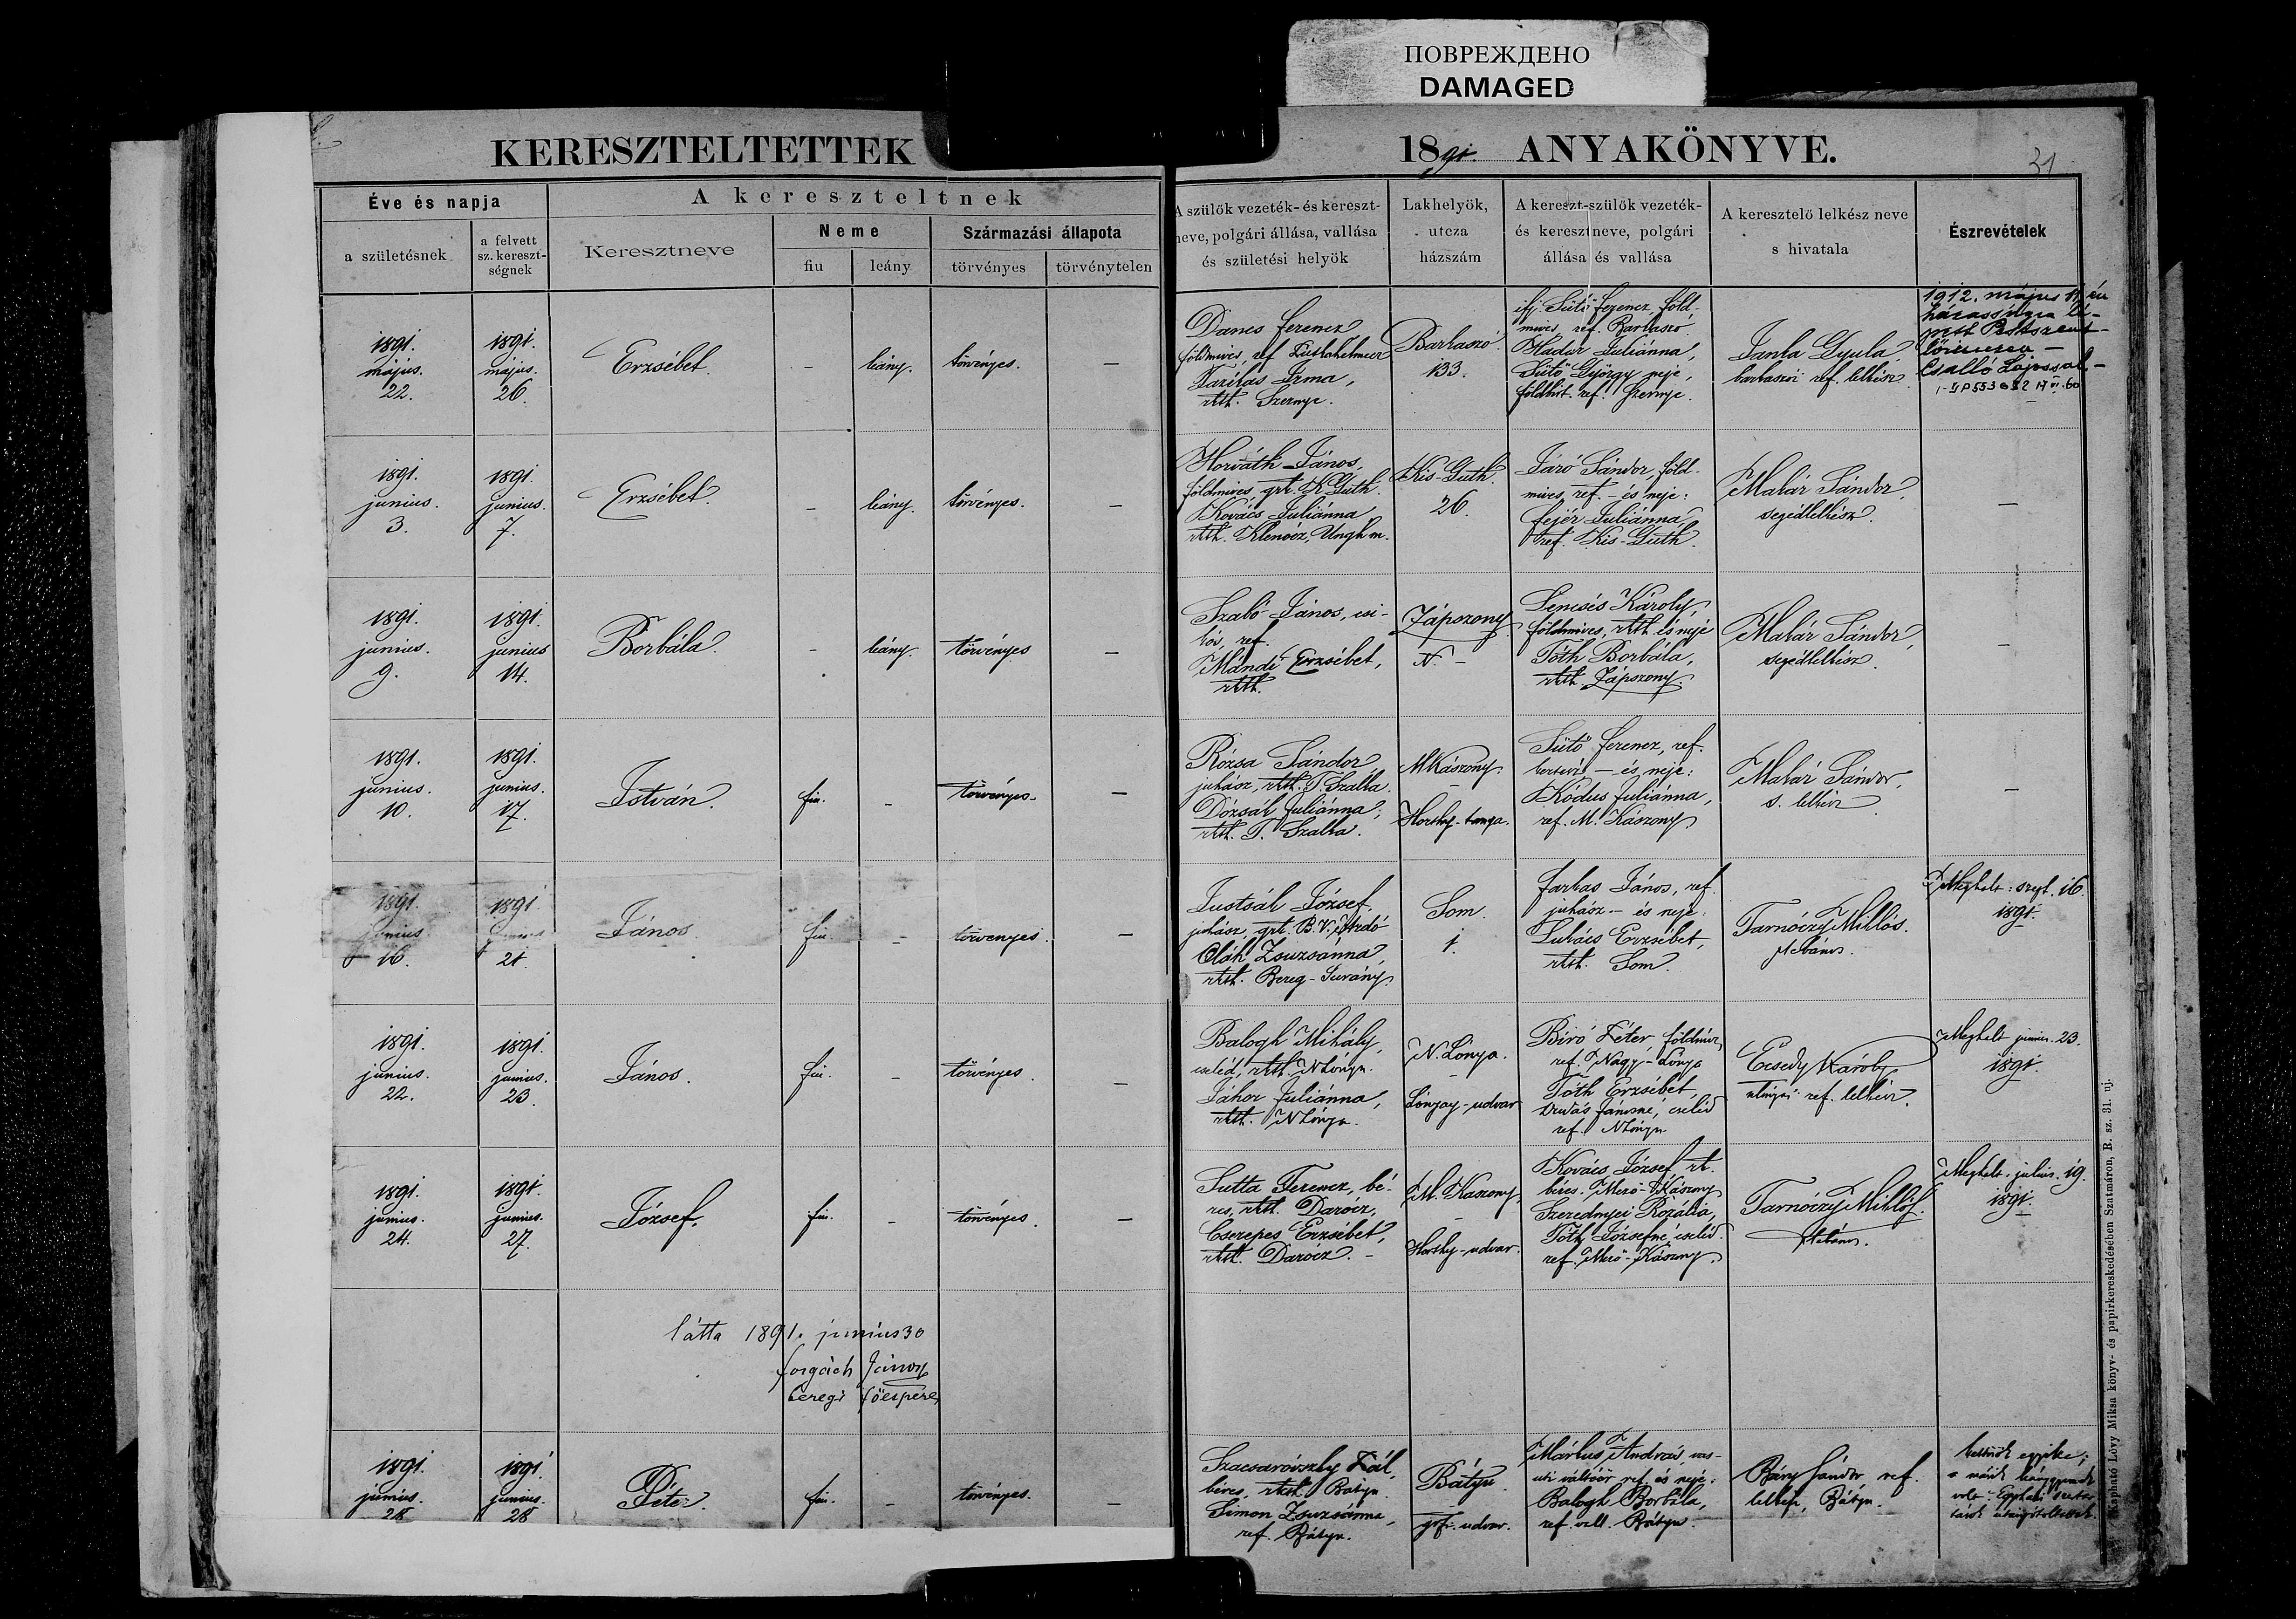 ПОВРЕЖДЕНО
DAMAGED
KERESZTELTETTEK
1891. ANYAKÖNYVE.
31
Éve és napja
a születésnek
a felvett
sz. kereszt-
ségnek
A kereszteltnek
Keresztneve
Neme
fiu
leány
Származási állapota
törvényes
törvénytelen
A szülők vezeték- és kereszt-
neve, polgári állása, vallása
és születési helyök
Lakhelyök,
utcza
házszám
A kereszt-szülők vezeték-
és keresztneve, polgári
állása és vallása
A keresztelő lelkész neve
s hivatala
Észrevételek
1891.
május.
22.
1891.
május.
26.
Erzsébet.
-
leány.
törvényes.
-
Dancs Ferencz
földmives, ref.
Irma,
rkth. Szernye.
Barkaszó.
133.
ifj. Sütő Ferencz, föld-
mives, ref. Barkaszó,
Hadar Juliánna,
Sütő György neje,
ref. Szernye.
Janka Gyula
barkaszói ref. lelkész.
1912. május én
házasságra lé-
pett Pestszent-
lőrinczen -
Csalló Lajossal -
1891.
junius.
3.
1891.
junius.
7.
Erzsébet.
-
leány.
törvényes.
-
Horváth János,
földmives, gkt. K. Guth.
Kovács Juliánna,
rkth. Klenócz, Ungh m.
Kis-Guth.
26.
Járó Sándor, föld-
mives, ref. - és neje:
Fejér Juliánna,
ref. Kis-Guth.
Makár Sándor,
segédlelkész.
-
1891.
junius.
9.
1891.
junius
14.
Borbála.
-
leány.
törvényes
-
Szabó János, csi-
kós, ref.
Mándi Erzsébet,
rkth.
Zápszony
N. -
Lencsés Károly,
földmives, rkth. és neje
Tóth Borbála,
rkth. Zápszony.
Makár Sándor,
segédlelkész.
-
1891.
junius.
10.
1891.
junius.
17.
István.
fiu.
-
törvényes.
-
Rózsa Sándor
juhász, rkth. T. Szalka.
Juliánna,
rkth. T. Szalka.
M Kászony.
-
Horthy-tanya.
Sütő Ferencz, ref.
- és neje:
Kódus Juliánna,
ref. M. Kászony.
Makár Sándor,
s. lelkész
-
1891.
junius.
16.
1891
junius
21.
János
fiu.
-
törvenyes.
-
Justsák József,
juhász, gkt. B. V. Ardó
Oláh Zsuzsánna,
rkth. Bereg-Surány.
Som.
1.
Farkas János, ref.
juhász - és neje:
Lukács Erzsébet,
rkth. Som.
Tarnóczy Miklós.
plebános.
Meghalt: szept. 16.
1891.
1891.
junius.
22.
1891.
junius.
23.
János.
fiu.
-
törvényes.
-
Balogh Mihály,
cseléd, rkth. N Lónya.
Jáhor Juliánna,
rkth. N Lónya.
N. Lónya.
-
Lónyay-udvar
Biró Péter földmives,
ref. Nagy-Lónya
Tóth Erzsébet,
Jánosné, cseléd
ref. N Lónya.
Ecsedy Károly
nlónyai ref. lelkész.
Meghalt junius. 23.
1891.
1891.
junius.
24.
1891.
junius.
27.
József.
fiu.
-
törvényes.
-
Sutta Ferencz, bé-
res, rkth. Darócz,
Cserepes Erzsébet,
rkth. Darócz. -
M. Kaszony.
-
Horthy-udvar.
Kovács József, rk.
béres. Mező-Kászony
Szerednyei Rozália,
Tóth Józsefné, cseléd.
ref. Mező-Kászony.
Tarnóczy Miklós.
plebános.
Meghalt. julius. 19.
1891.
látta 1891. junius 30
Forgách János
beregi főesperes
1891.
junius.
28
1891.
junius.
28
Péter.
fiu.
-
törvényes.
-
Pál,
béres, rkth. Batyu.
Simon Zsuzsánna,
ref. Bátyu.
Bátyu.
grófi udvar.
Márkus András, vas-
uti váltóőr ref. és neje:
Balogh Borbála,
ref. vall. Bátyu.
Sándor, ref.
lelkész, Bátyu.
egyike;
a másik
Kapható Lővy Miksa könyv- és papirkereskedésében Szatmáron, B. sz. 31. uj.